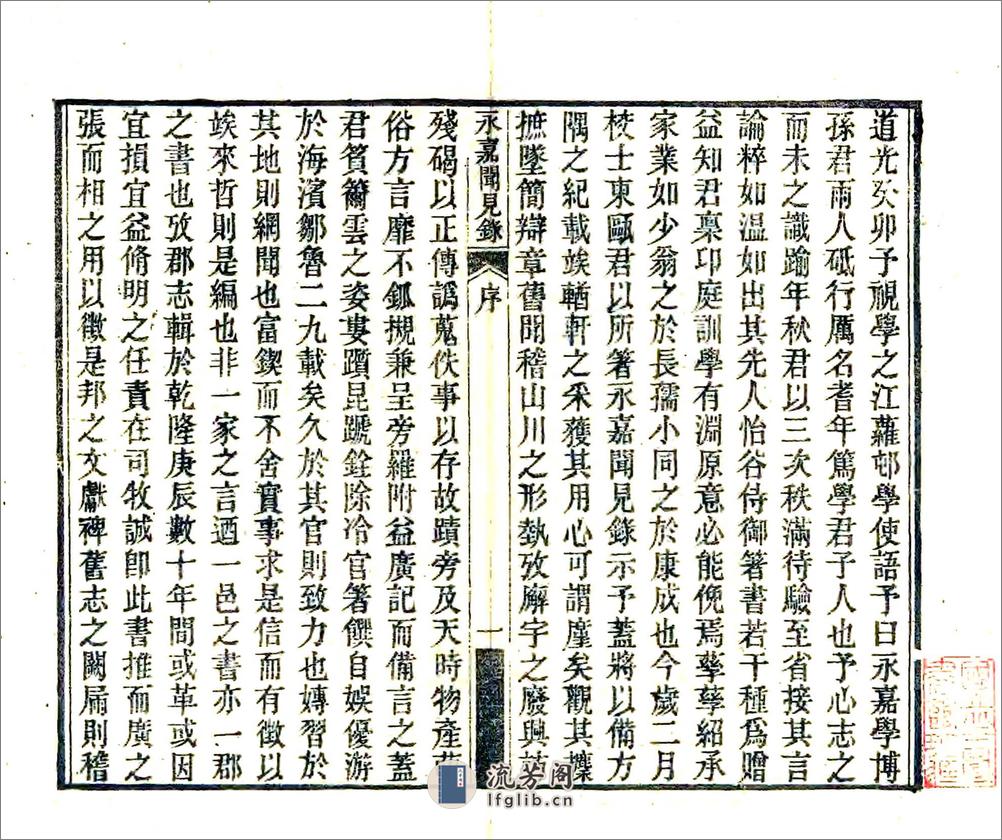 道光癸卯予視學之江蘿邨學使語予曰永嘉學博
孫君雨人砥行厲名耆年篤學君子人也予心志之
而未之識踰年秋君以三次秩滿待驗至省接其言
論粹如溫如出其先人怡谷侍御箸書若干種爲贈
益知君稟印庭訓學有淵原意必能俛焉孳孳紹承
家業如少翁之於長孺小同之於康成也今歲二月
校士東甌君以所箸永嘉聞見錄示予蓋將以備方
隅之紀載竢輶軒之采獲其用心可謂廑矣觀其攗
摭墜簡辯章舊聞稽山川之形埶攷廨宇之廢興
永嘉聞見錄
序
一
殘碣以正傳譌蒐佚事以存故蹟旁及天時物產
俗方言靡不釽摫兼呈旁羅附益廣記而備言之蓋
君負籋雲之姿婁躓昆蹏銓除冷官箸饌自娛優游
於海濱鄒魯二九載矣久於其官則致力也嫥習於
其地則網聞也富鍥而不舍實事求是信而有徵以
竢來哲則是編也非一家之言迺一邑之書亦一郡
之書也攷郡志輯於乾隆庚辰數十年間或革或因
宜損宜益脩明之任責在司牧誠卽此書推而廣之
張而相之用以徵是邦之文獻裨舊志之闕扁則稽
流芳阁
lfglib.cn